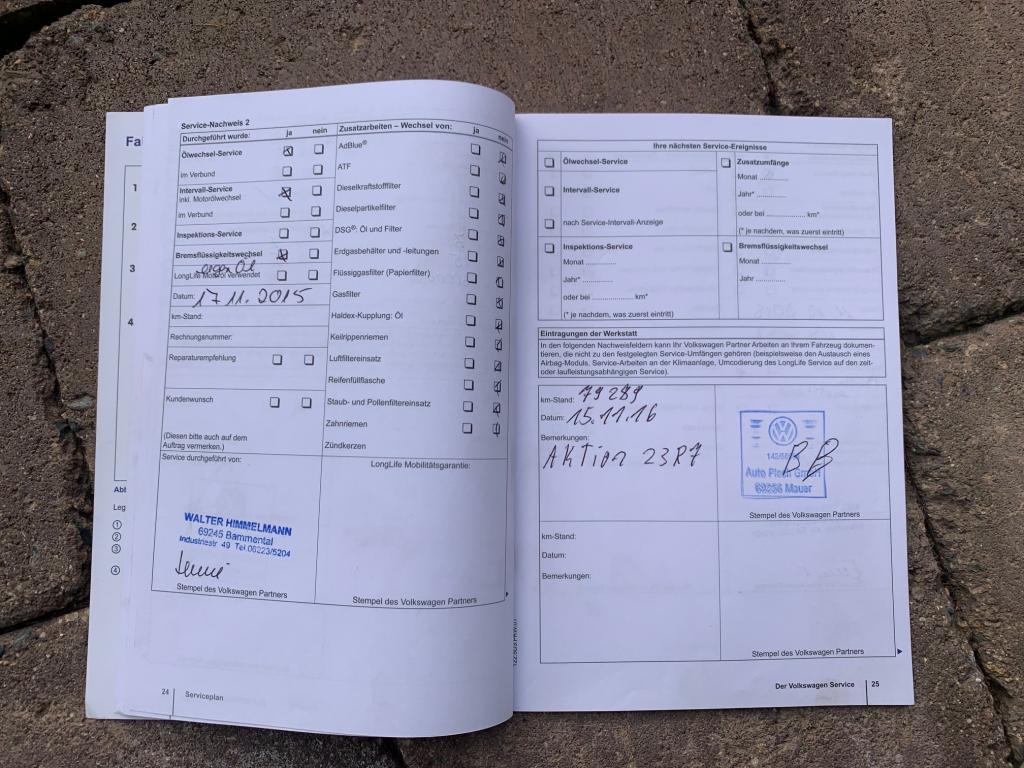 Fa
1
2
3
4
Abb
Leg
1
2
3
4
Service-Nachweis 2
Durchgeführt wurde: ja nein
Ölwechsel-Service
im Verbund
Intervall-Service
inkl. Motorölwechsel
im Verbund
Inspektions-Service
Bremsflüssigkeitswechsel
eigen Öl
LongLife Motoröl verwendet
Datum: 17 11. 2015
km-Stand:
Rechnungsnummer:
Reparaturempfehlung
Kundenwunsch
(Diesen bitte auch auf dem
Auftrag vermerken.)
Zusatzarbeiten – Wechsel von: ja nein
AdBlue®
ATF
Dieselkraftstofffilter
Dieselpartikelfilter
DSG®: Öl und Filter
Erdgasbehälter und -leitungen
Flüssiggasfilter (Papierfilter)
Gasfilter
Haldex-Kupplung: Öl
Keilrippenriemen
Luftfiltereinsatz
Reifenfüllflasche
Staub- und Pollenfiltereinsatz
Zahnriemen
Zündkerzen
Service durchgeführt von:
WALTER HIMMELMANN
69245 Bammental
Industriestr. 49 Tel.06223/5204
Stempel des Volkswagen Partners
LongLife Mobilitätsgarantie:
Stempel des Volkswagen Partners
24 Serviceplan
Ihre nächsten Service-Ereignisse
Ölwechsel-Service
Intervall-Service
nach Service-Intervall-Anzeige
Zusatzumfänge
Monat ...........
Jahr* ............
oder bei .................. km*
(* je nachdem, was zuerst eintritt)
Inspektions-Service
Monat ...........
Jahr* ............
oder bei .................. km*
(* je nachdem, was zuerst eintritt)
Bremsflüssigkeitswechsel
Monat ...........
Jahr ............
Eintragungen der Werkstatt
In den folgenden Nachweisfeldern kann Ihr Volkswagen Partner Arbeiten an Ihrem Fahrzeug dokumen-
tieren, die nicht zu den festgelegten Service-Umfängen gehören (beispielsweise den Austausch eines
Airbag-Moduls, Service-Arbeiten an der Klimaanlage, Umcodierung des LongLife Service auf den zeit-
oder laufleistungsabhängigen Service).
km-Stand: 79289
Datum: 15.11.16
Bemerkungen:
AKTion 23R7
Auto GmbH
69256 Mauer
BB
Stempel des Volkswagen Partners
km-Stand:
Datum:
Bemerkungen:
Stempel des Volkswagen Partners
Der Volkswagen Service 25